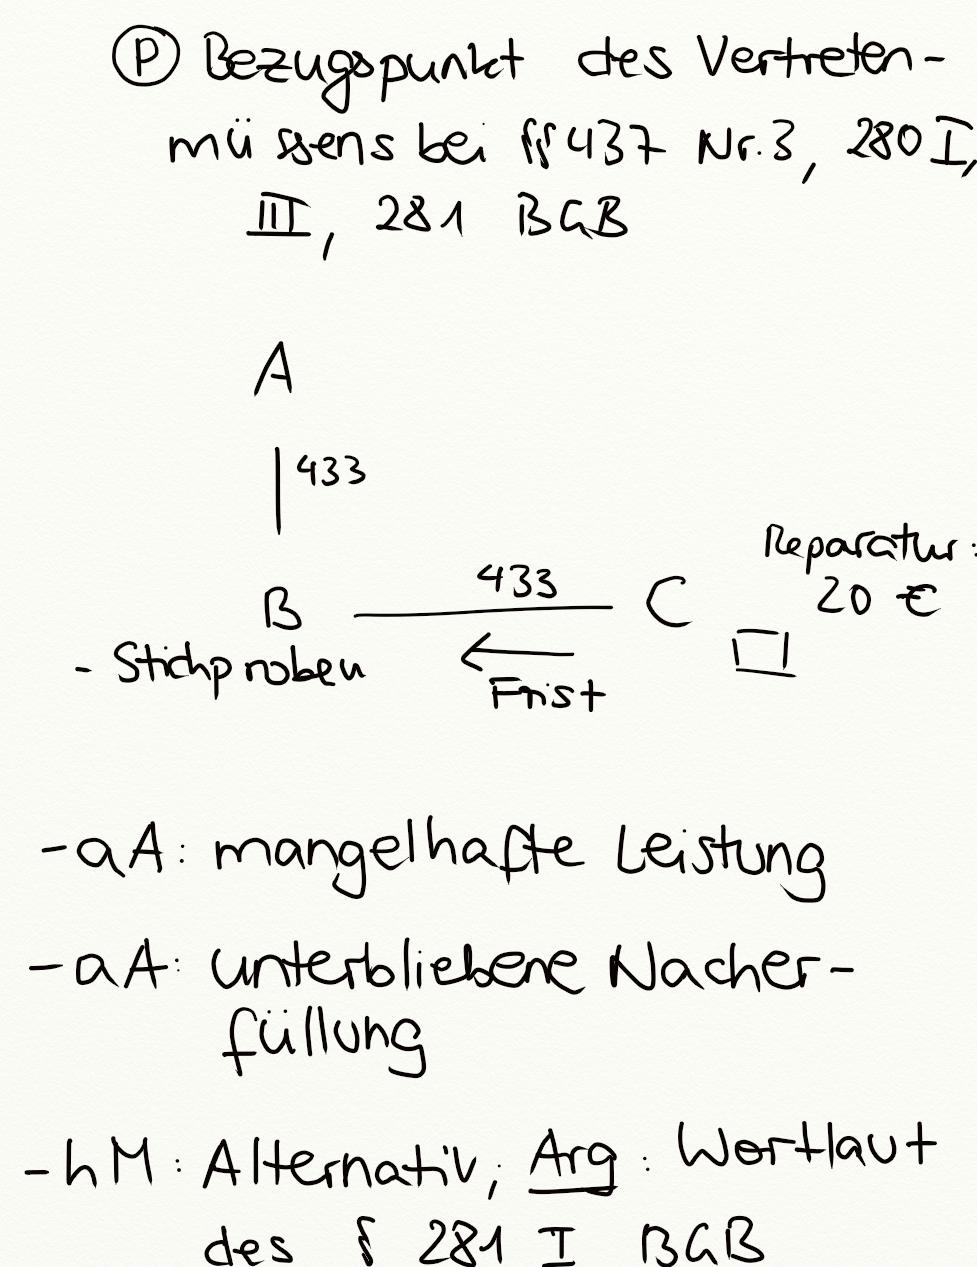 Ⓟ Bezugspunkt des Vertreten-
müssens bei §§ 437 Nr. 3, 280 I,
III, 281 BGB
A
433
B
433
C
Reparatur:
20 €
- Stichproben
Frist
- aA: mangelhafte Leistung
- aA: unterbliebene Nacher-
füllung
- hM: Alternativ; Arg: Wortlaut
des § 281 I BGB